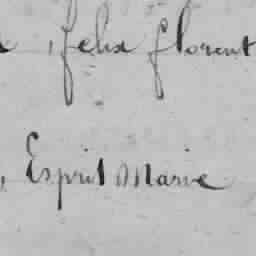 , felix florent
, Esprit Marie